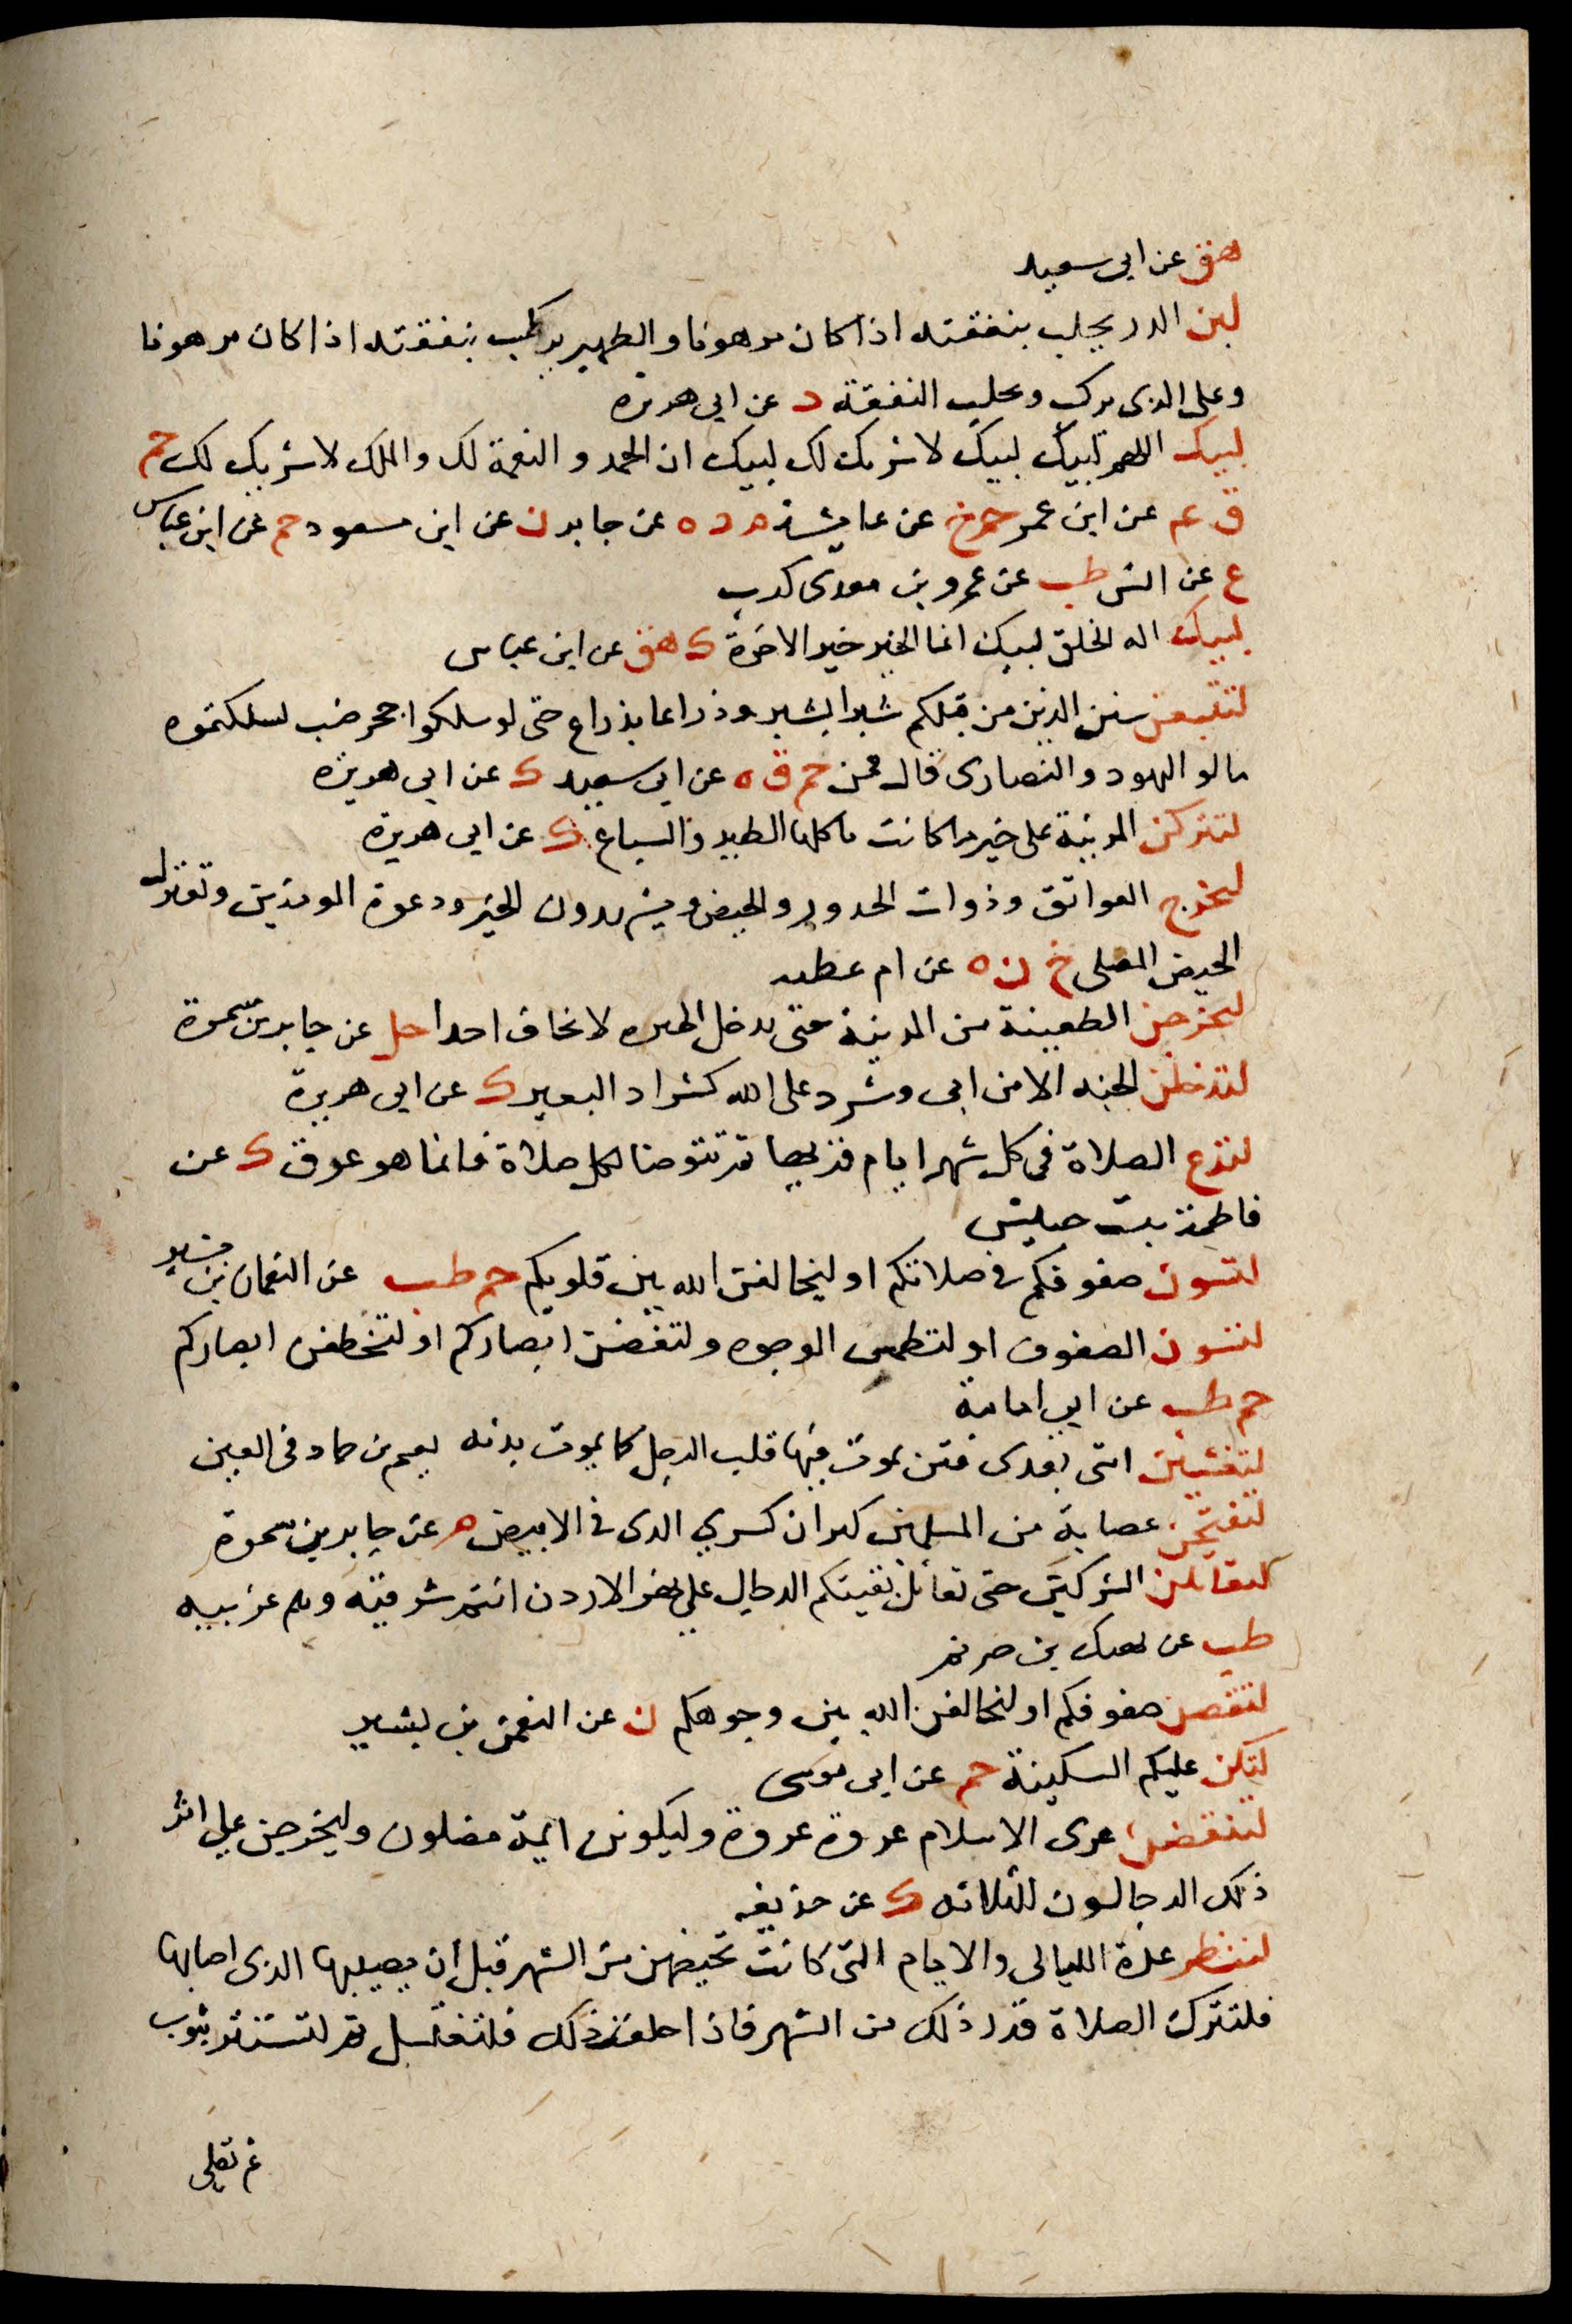 هق عن ابى سعيد
لبن الدر يحلب بنفقته اذا كان مرهونا والظهر يركب بنفقته اذا كان مرهونا
وعلى الذى يركب ويحلب النفقة د عن ابى هريرة
لبيك اللهم لبيك لبيك لا شريك لك لبيك ان الحمد والنعمة لك والملك لا شريك لك حم
ق عم عن ابن عمر حم خ عن عايشة م د ه عن جابر ن عن ابن مسعود حم عن ابن عباس
ع عن انس طب عن عمرو بن معدى كرب
لبيك اله الخلق لبيك انما الخير خير الاخرة ك هق عن ابن عباس
لتتبعن سنن الذين من قبلكم شبرا بشبر وذراعا بذراع حتى لو سلكوا جحر ضب لسلكتموه
قالو اليهود والنصارى قال فمن حم ق ه عن ابى سعيد ك عن ابى هريرة
لتتركن المدينة على خير ما كانت تاكلها الطير والسباع ك عن ابى هريرة
لتخرج العواتق وذوات الخدور والحيض ويشهدون الخير ودعوة المومنين وتعتزل
الحيض المصلى خ ن ه عن ام عطيه
لتخرجن الظعينة من المدينة حتى تدخل الحيره لا تخاف احدا حل عن جابر بن سمرة
لتدخلن الجنه الا من ابى وشرد على الله كشراد البعير ك عن ابى هريرة
لتدع الصلاة فى كل شهر ايام قريها ثم تتوضا لكل صلاة فانما هو عرق ك عن
فاطمة بنت حبيش
لتسون صفوفكم فى صلاتكم او ليخالفن الله بين قلوبكم حم طب عن النعمان بن بشير
لتسون الصفوف او لتطمس الوجوه ولتغضن ابصاركم او لتخطفن ابصاركم
حم طب عن ابى امامة
لتغشين امتى بعدى فتن يموت فيها قلب الرجل كما يموت بدنه نعيم بن حماد فى الفتن
لتفتحن عصابة من المسلمين كنزان كسرى الذى فى الابيض م عن جابر بن سمرة
لتقاتلن المشركين حتى تقاتل بقيتكم الدجال على نهر الاردن انتم شرقيه وهم غربيه
طب عن نهيك بن صريم
لتقصن صفوفكم او لتخالفن الله بين وجوهكم ن عن النعمن بن بشير
لتكن عليكم السكينة حم عن ابى موسى
لتنقضن عرى الاسلام عروة عروة وليكونن ايمة مضلون وليخرجن على اثر
ذلك الدجالون الثلاثه ك عن حذيفه
لتنظر عدة الليالى والايام التى كانت تحيضهن من الشهر قبل ان يصيبها الذى اصابها
فلتترك الصلاة قدر ذلك من الشهر فاذا خلفت ذلك فلتغتسل ثم لتستثفر بثوب
ثم تصلى